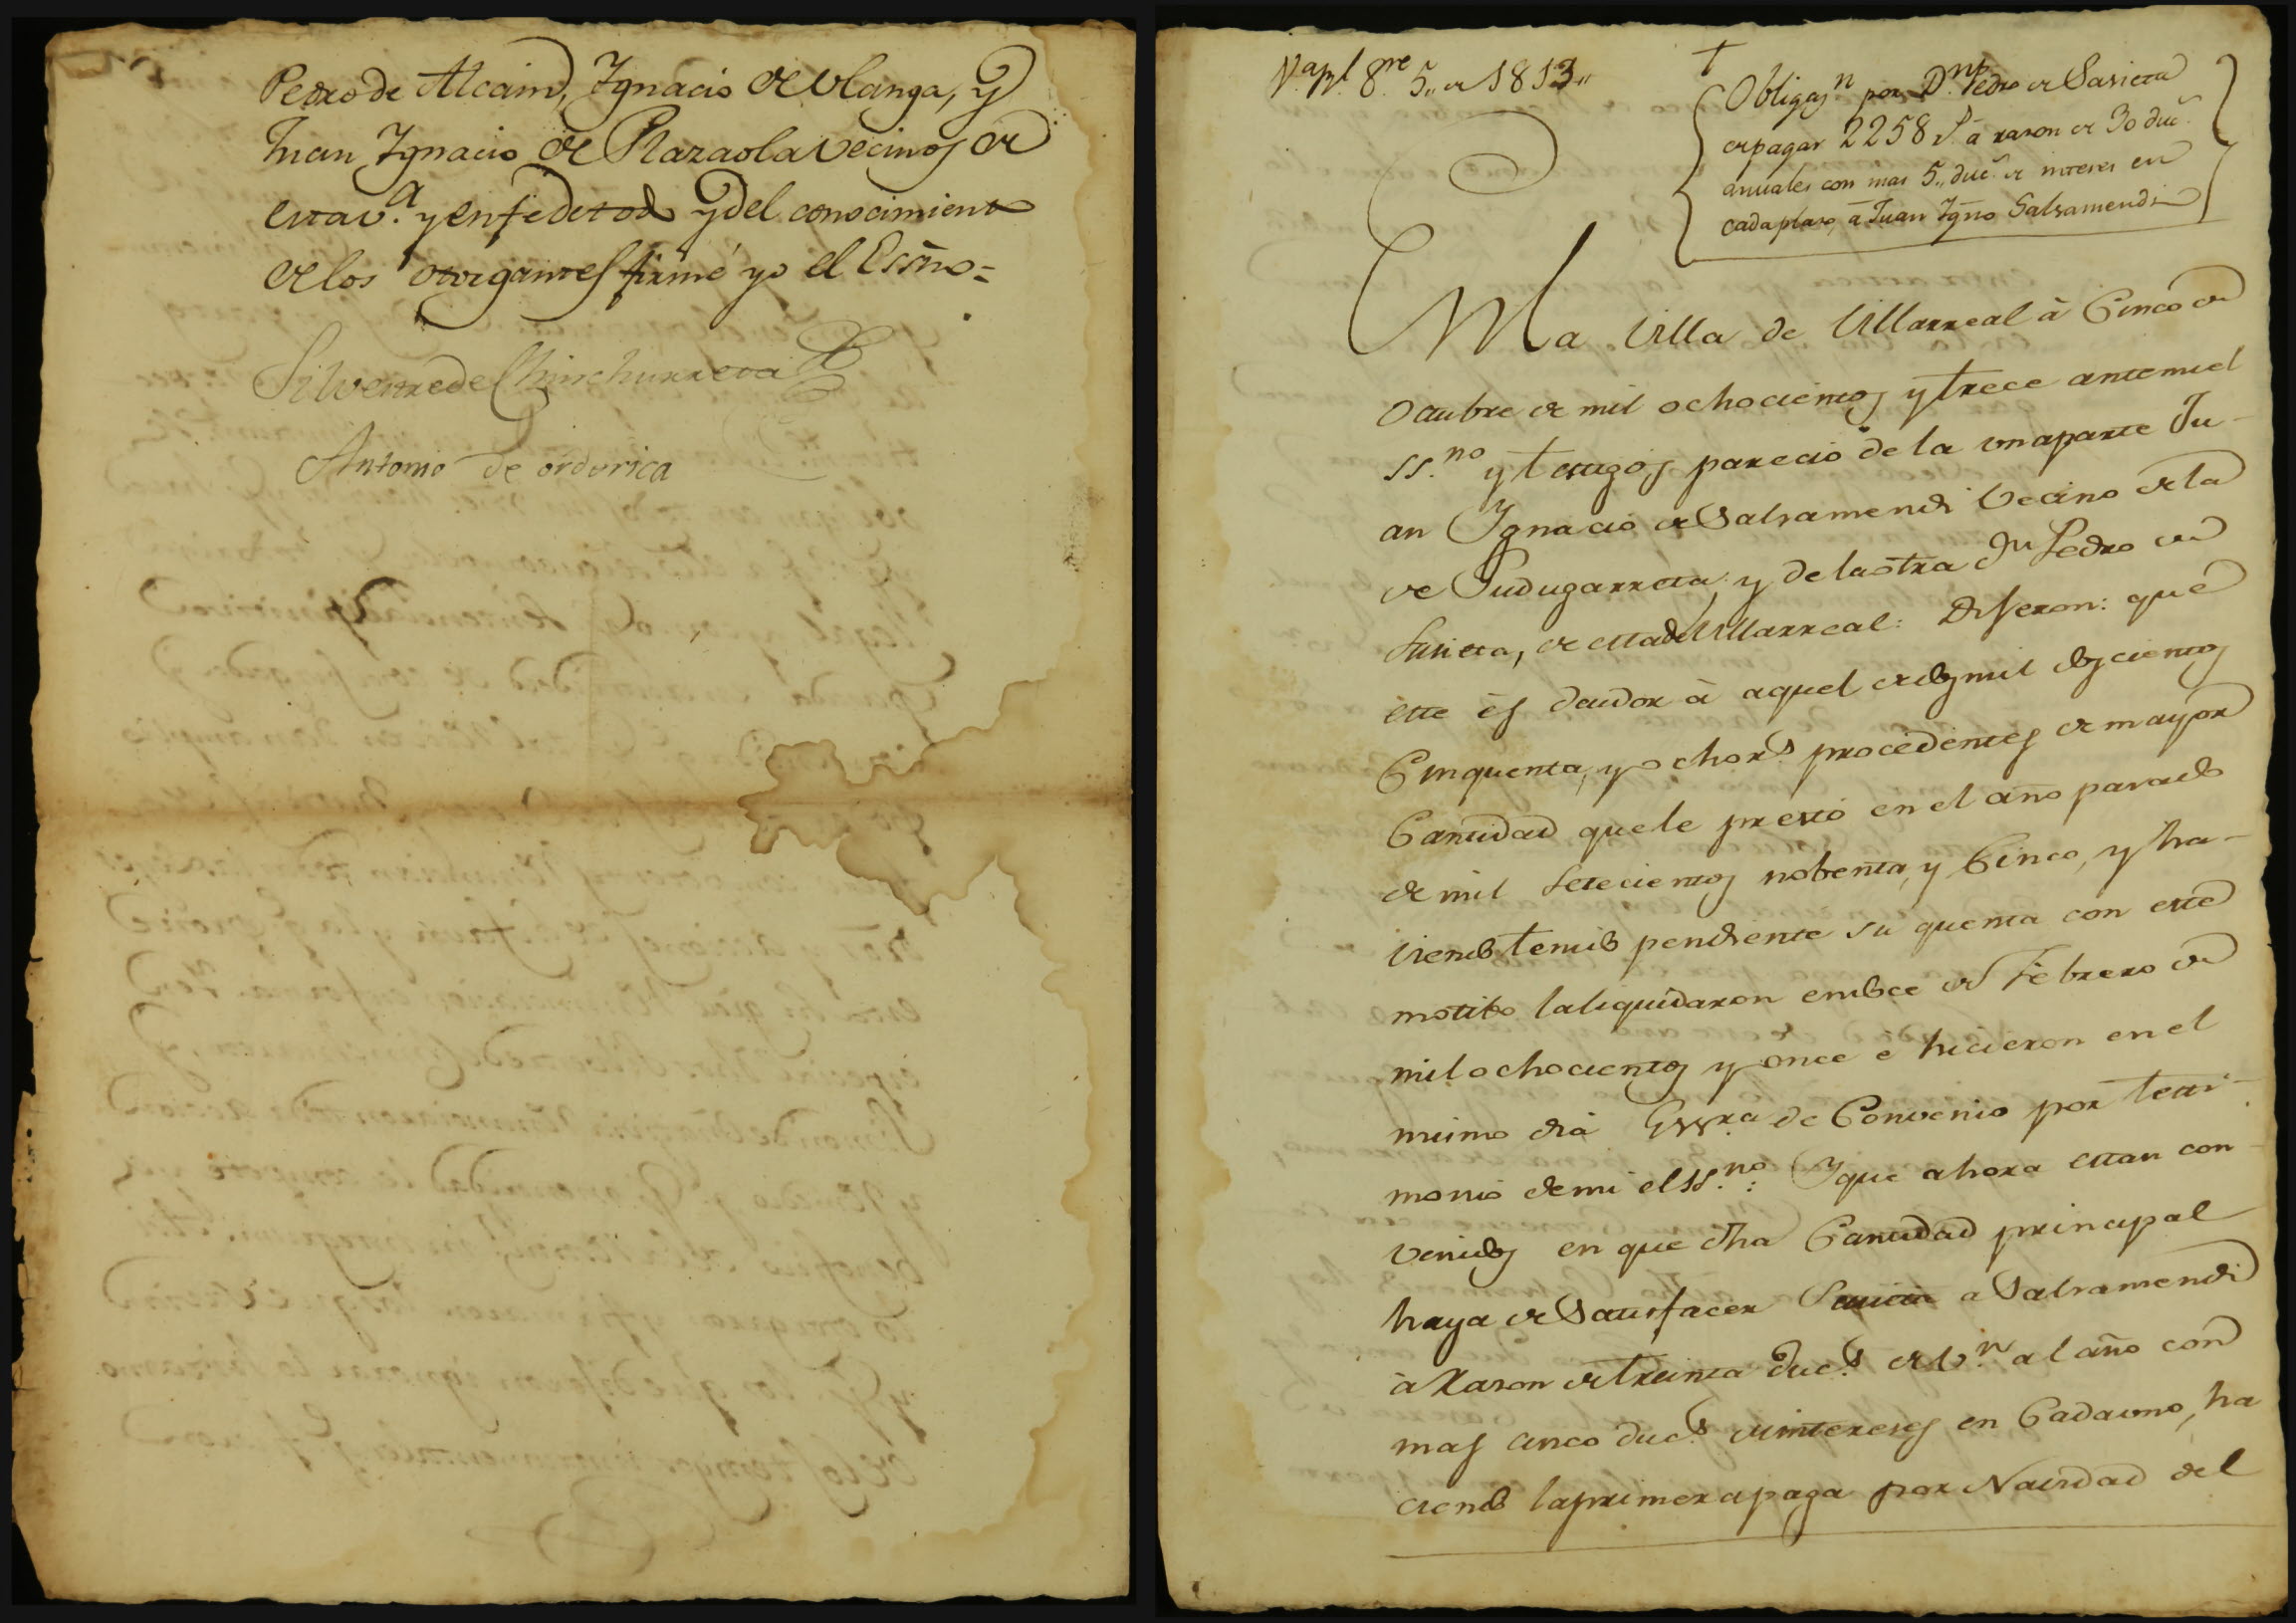 Pedro de Alcain, Ygnacio de Olanga, y
Juan Ygnacio de Plazaola vecinos de
esta v.ª y en fe de todo y del conocimiento
de los otorgantes firmé yo el Esno=
Silvestre de Chinchurreta
Antonio de ordorica
8.re 5,, de 1813,,
†
Obligas.n por D.n Pedro de Sasieta
de pagar 2258 r.s a razon de 30 duc.s
anuales con mas 5,, duc.s de interes en
cada plazo, à Juan Ygno Salsamendi
En la Villa de Villarreal à Cinco de
Octubre de mil ochocientos y trece ante mi el
ss.no y testigos parecio de la una parte Ju-
an Ygnacio de Salsamendi Vecino de la
de Gudugarreta, y de la otra Dn Pedro de
Sasieta, de esta de Villarreal: Dijeron: que
este és deudor à aquel de dos mil doscientos
Cinquenta, y ocho r.s procedentes de mayor
Cantidad que le prestó en el año pasado
de mil setecientos nobenta, y Cinco, y ha-
viendo tenido pendiente su quenta con este
motibo la liquidaron en doce de Febrero de
mil ochocientos y once e hicieron en el
mismo dia Essra de Convenio por testi-
monio de mi el ss.no: Y que ahora estan con
venidos en que dha Cantidad principal
haya de Satisfacer Sasieta a Salsamendi
à Razon de treinta duc.s de v.n al año con
mas cinco duc.s de intereses en Cada uno, ha
ciendo la primera paga por Navidad del